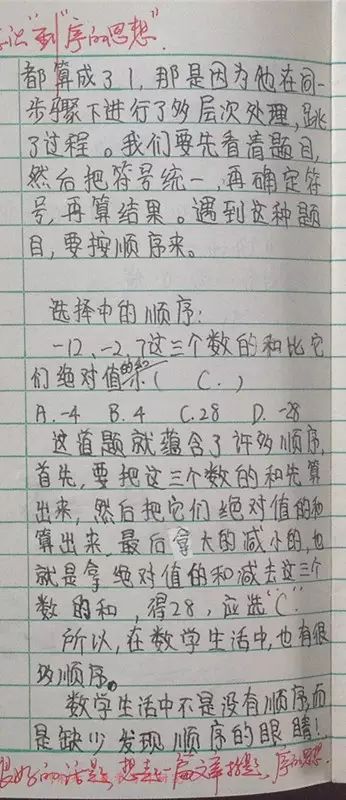 到"序的思想".
都算成了1,那是因为他在同一
步骤下进行了多层次处理,跳
了过程。我们要先看清题目,
然后把符号统一,再确定符
号,再算结果。遇到这种题
目,要按顺序来。
选择中的顺序:
-12、-2、7这三个数的和比它
们绝对值的和(C.)
A.-4 B.4 C.28 D.-28
这道题就蕴含了许多顺序,
首先,要把这三个数的和先算
出来,然后把它们绝对值的和
算出来,最后拿大的减小的,也
就是拿绝对值的和减去这三个
数的和,得28,应选"C"
所以,在数学生活中,也有很
多顺序。
数学生活中不是没有顺序,而
是缺少发现顺序的眼睛!
很好的话题,想 一篇文章 序的思想.